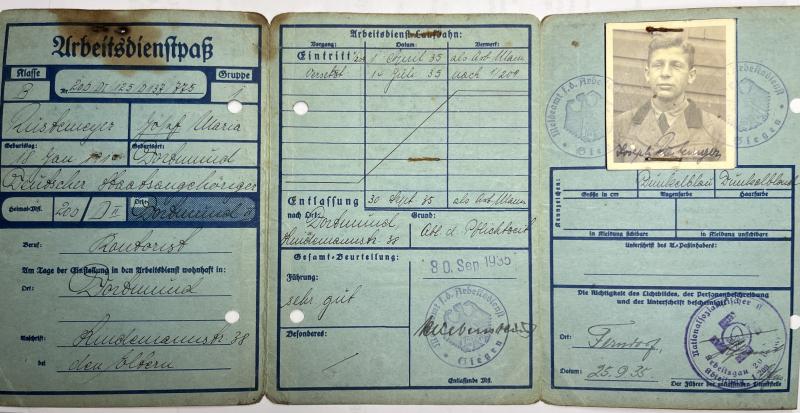 Arbeitsdienstpaß
Klasse
Gruppe
B
Nr. 200 DII 125 D137 775
1
Rüstemeyer Josef Maria
Geburtstag:
Geburtsort:
18 Jan Dortmund
Deutscher Staatsangehöriger
Heimat-MA.
200 / D II
Ort:
Dortmund
Beruf:
Kontorist
Am Tage der Einstellung in den Arbeitsdienst wohnhaft in:
Ort:
Dortmund
Anschrift:
Lindemannstr 38
bei
den Eltern
Arbeitsdienst-Laufbahn:
Vorgang:
Datum:
Vermerk:
Eintritt
1 April 35
als Arb. Mann
Versetzt
14 Juli 35
nach 1/200
Entlassung
30 Sept 35
als Arb. Mann
nach Ort:
Dortmund,
Lindemannstr. 38
Grund:
Abl. d. Pflichtzeit
Gesamt-Beurteilung:
Führung:
sehr gut
30. Sep 1935
Besonderes:
Meldeamt f.d. Arbeitsdienst
Siegen
Entlassende MA.
Meldeamt f.d. Arbeitsdienst
Siegen
Kennzeichen:
Dunkelblau
Dunkelblond
Größe in cm
Augenfarbe
Haarfarbe
in Kleidung sichtbar
in Kleidung unsichtbar
Unterschrift des A.-Paßinhabers:
Die Richtigkeit des Lichtbildes, der Personenbeschreibung
und der Unterschrift bescheinigt:
Ort:
Ferndorf
Datum:
25.9.35
Der Führer der
Nationalsozialistischer
Arbeitsgau